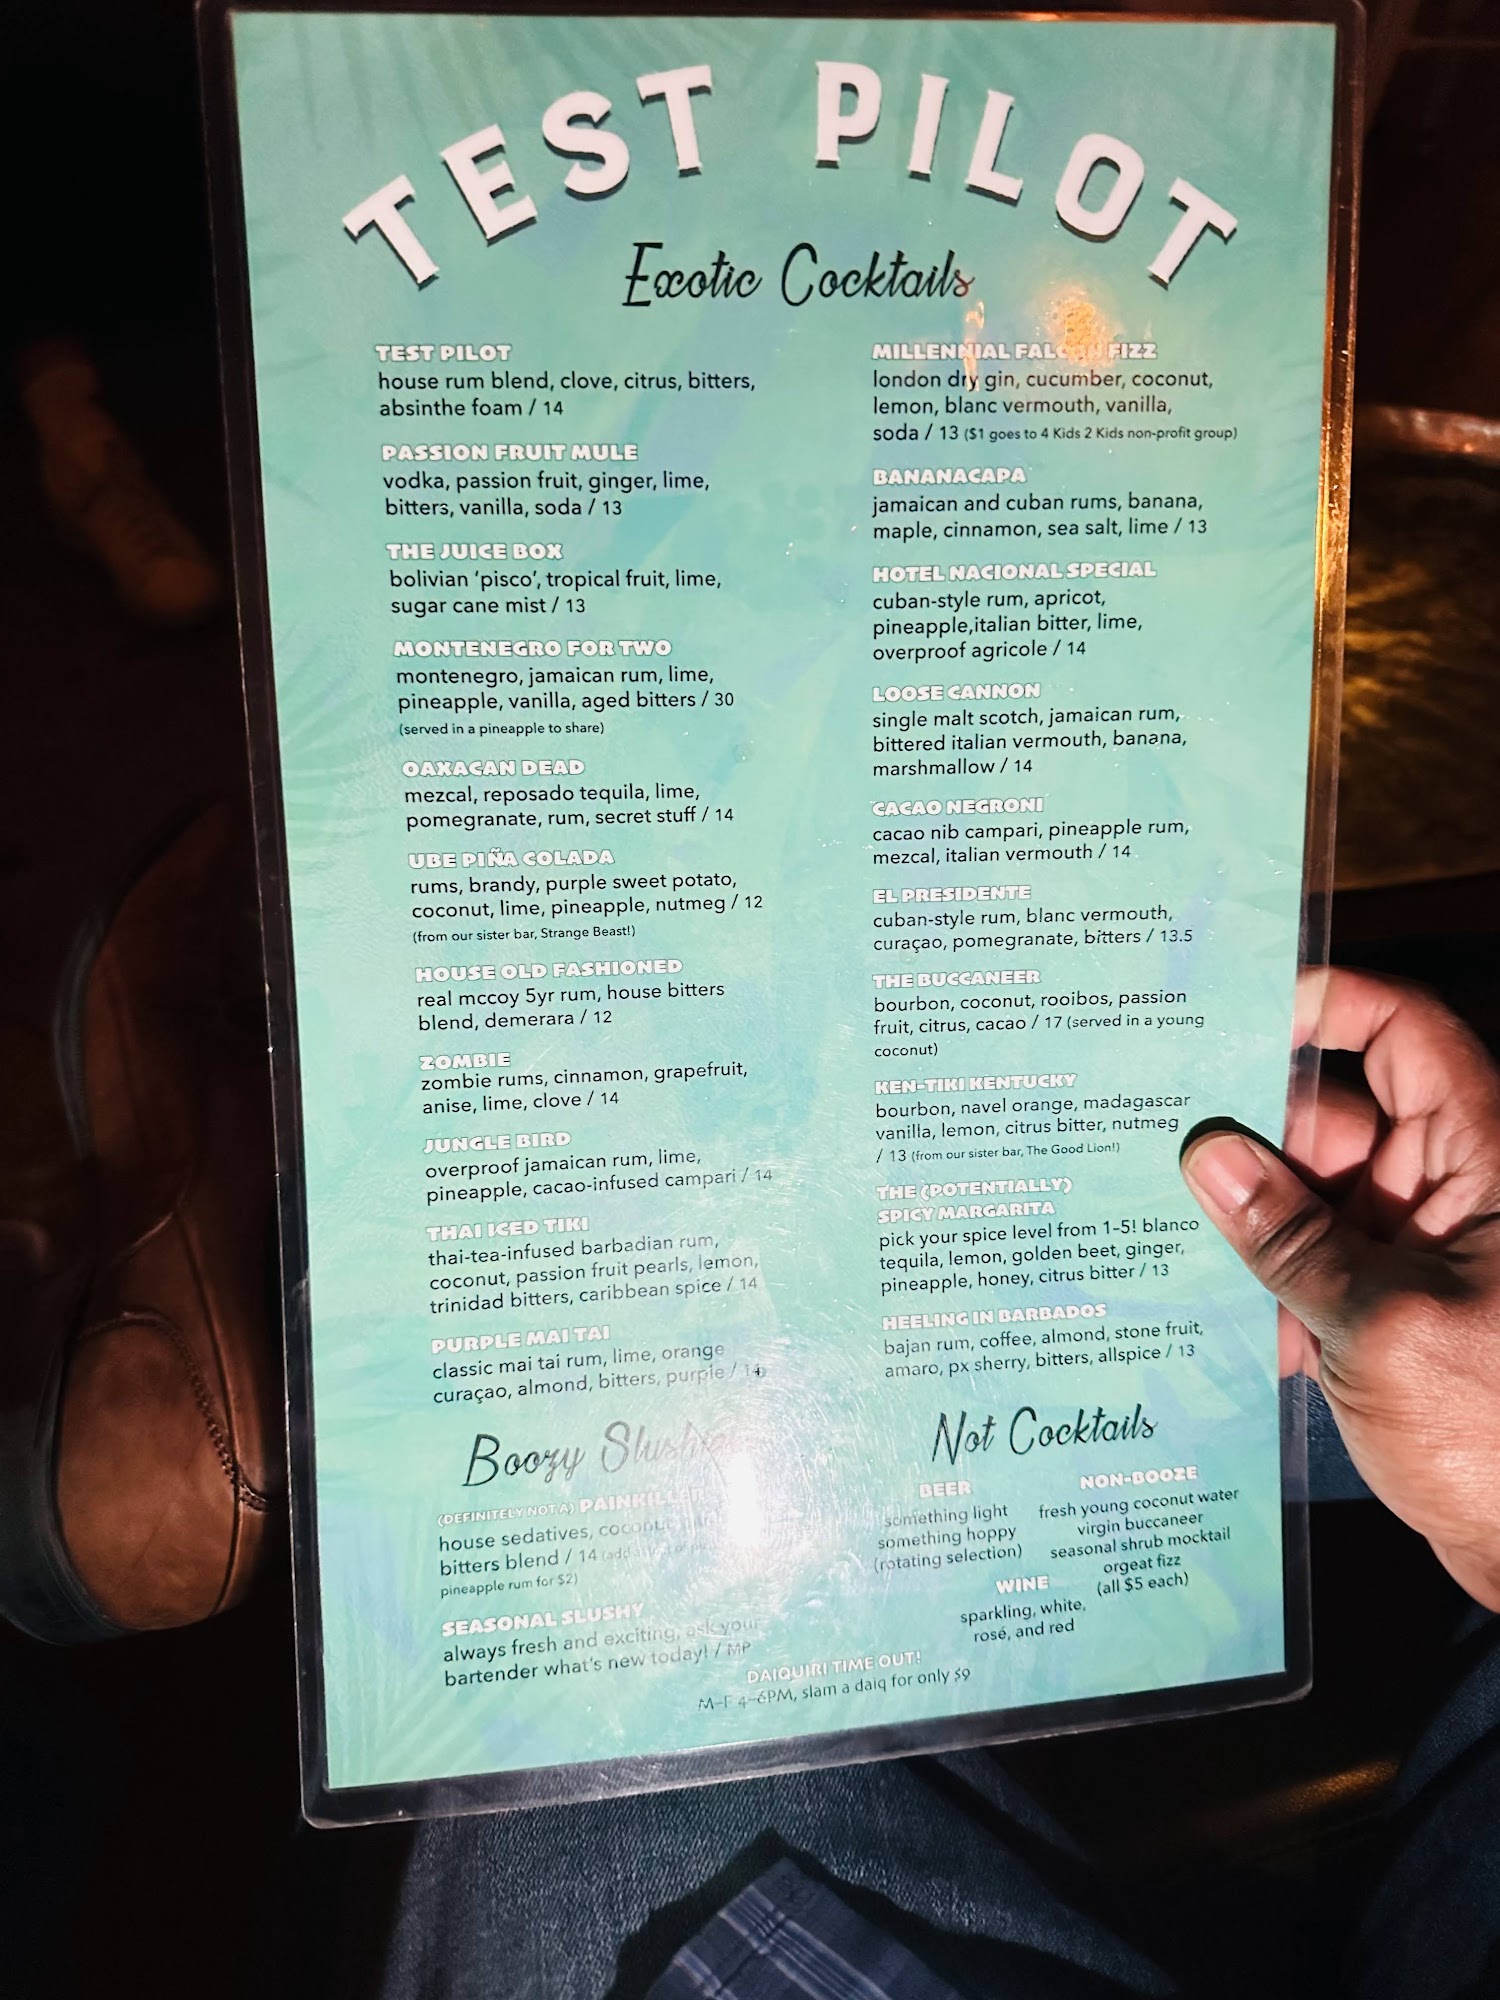 TEST PILOT
Exotic Cocktails
TEST PILOT
house rum blend, clove, citrus, bitters,
absinthe foam / 14
PASSION FRUIT MULE
vodka, passion fruit, ginger, lime,
bitters, vanilla, soda / 13
THE JUICE BOX
bolivian ‘pisco’, tropical fruit, lime,
sugar cane mist / 13
MONTENEGRO FOR TWO
montenegro, jamaican rum, lime,
pineapple, vanilla, aged bitters / 30
(served in a pineapple to share)
OAXACAN DEAD
mezcal, reposado tequila, lime,
pomegranate, rum, secret stuff / 14
UBE PIÑA COLADA
rums, brandy, purple sweet potato,
coconut, lime, pineapple, nutmeg / 12
(from our sister bar, Strange Beast!)
HOUSE OLD FASHIONED
real mccoy 5yr rum, house bitters
blend, demerara / 12
ZOMBIE
zombie rums, cinnamon, grapefruit,
anise, lime, clove / 14
JUNGLE BIRD
overproof jamaican rum, lime,
pineapple, cacao-infused campari / 14
THAI ICED TIKI
thai-tea-infused barbadian rum,
coconut, passion fruit pearls, lemon,
trinidad bitters, caribbean spice / 14
PURPLE MAI TAI
classic mai tai rum, lime, orange
curaçao, almond, bitters, purple / 14
Boozy
(DEFINITELY NOT A) PAINKILLER
house sedatives, coconut,
bitters blend / 14
pineapple rum for $2)
SEASONAL SLUSHY
always fresh and exciting, ask your
bartender what's new today! / MP
MILLENNIAL FALCON FIZZ
london dry gin, cucumber, coconut,
lemon, blanc vermouth, vanilla,
soda / 13 ($1 goes to 4 Kids 2 Kids non-profit group)
BANANACAPA
jamaican and cuban rums, banana,
maple, cinnamon, sea salt, lime / 13
HOTEL NACIONAL SPECIAL
cuban-style rum, apricot,
pineapple,italian bitter, lime,
overproof agricole / 14
LOOSE CANNON
single malt scotch, jamaican rum,
bittered italian vermouth, banana,
marshmallow / 14
CACAO NEGRONI
cacao nib campari, pineapple rum,
mezcal, italian vermouth / 14
EL PRESIDENTE
cuban-style rum, blanc vermouth,
curaçao, pomegranate, bitters / 13.5
THE BUCCANEER
bourbon, coconut, rooibos, passion
fruit, citrus, cacao / 17 (served in a young
coconut)
KEN-TIKI KENTUCKY
bourbon, navel orange, madagascar
vanilla, lemon, citrus bitter, nutmeg
/ 13 (from our sister bar, The Good Lion!)
THE (POTENTIALLY)
SPICY MARGARITA
pick your spice level from 1-5! blanco
tequila, lemon, golden beet, ginger,
pineapple, honey, citrus bitter / 13
HEELING IN BARBADOS
bajan rum, coffee, almond, stone fruit,
amaro, px sherry, bitters, allspice / 13
Not Cocktails
BEER
something light
something hoppy
(rotating selection)
NON-BOOZE
fresh young coconut water
virgin buccaneer
seasonal shrub mocktail
orgeat fizz
(all $5 each)
WINE
sparkling, white,
rosé, and red
DAIQUIRI TIME OUT!
M-F 4-6PM, slam a daiq for only $9